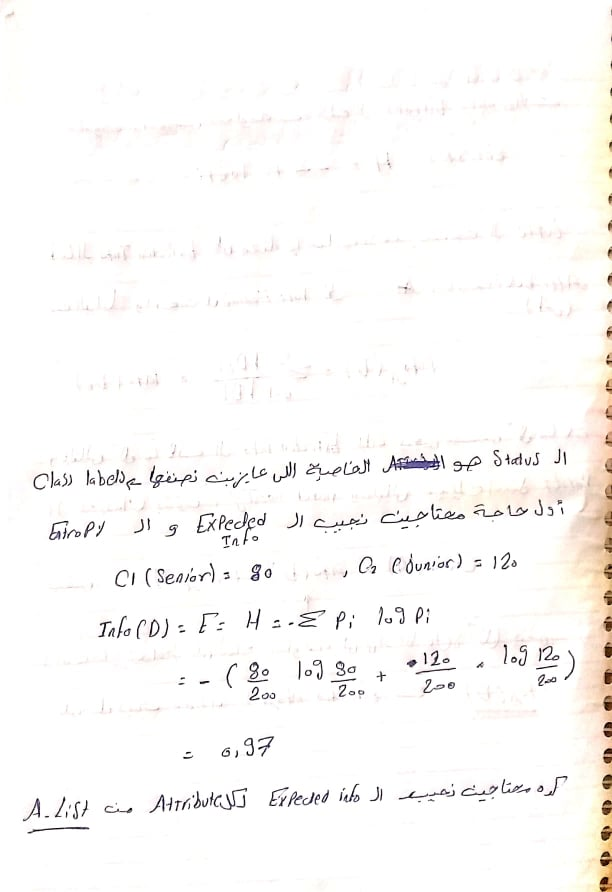 ال Status هو الخاصية اللى عايزين نصنفها ع Class labels
أول حاجة محتاجين نجيب ال Expected Info و ال Entropy
C1 (Senior) = 80 , C2 (Junior) = 120
Info(D) = E = H = -Σ Pi log Pi
= - ( 80/200 log 80/200 + 120/200 * log 120/200 )
= 0,97
كده محتاجين نجيب ال Expected info لكل Attribute من A-List